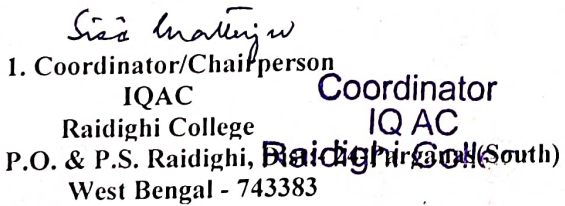 1. Coordinator/Chairperson
IQAC
Raidighi College
P.O. & P.S. Raidighi, Dist.- 24 Parganas(South)
West Bengal - 743383
Coordinator
IQ AC
Raidighi College